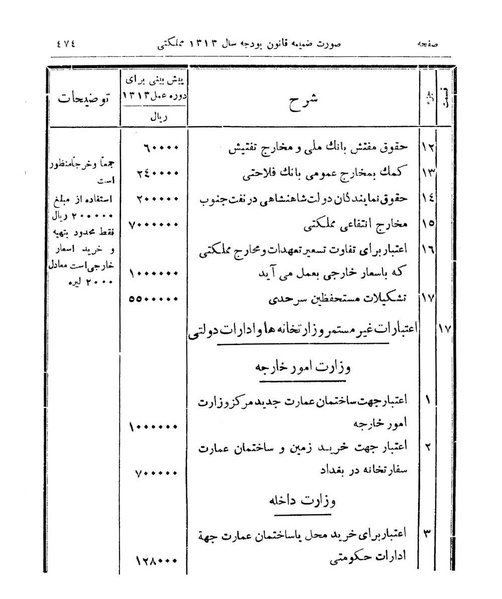 صفحه صورت ضمیمه قانون بودجه سال ۱۳۱۳ مملکتی ۴۷۴
قسمت جزء شرح پیش بینی برای دوره عمل ۱۳۱۳ توضیحات
ریال
۱۲ حقوق مفتش بانك ملی و مخارج تفتیش ۶۰۰۰۰
۱۳ كمك بمخارج عمومی بانك فلاحتی ۲۴۰۰۰۰ جمعاً و خرجاً منظور است
۱۴ حقوق نمایندگان دولت شاهنشاهی در نفت جنوب ۲۰۰۰۰۰ استفاده از مبلغ ۲۰۰۰۰۰ ریال فقط محدود بتهیه و خرید اسعار خارجی است معادل ۲۰۰۰ لیره
۱۵ مخارج انتفاعی مملکتی ۷۰۰۰۰۰۰
۱۶ اعتبار برای تفاوت تسعیر تعهدات و مخارج مملکتی
که باسعار خارجی بعمل می آید ۱۰۰۰۰۰۰
۱۷ تشکیلات مستحفظین سرحدی ۵۵۰۰۰۰۰
۱۷ اعتبارات غیر مستمر وزارتخانه ها و ادارات دولتی
وزارت امور خارجه
۱ اعتبار جهت ساختمان عمارت جدید مرکز وزارت
امور خارجه ۱۰۰۰۰۰۰
۲ اعتبار جهت خرید زمین و ساختمان عمارت
سفارتخانه در بغداد ۷۰۰۰۰۰
وزارت داخله
۳ اعتبار برای خرید محل یا ساختمان عمارت جهة
ادارات حکومتی ۱۲۸۰۰۰